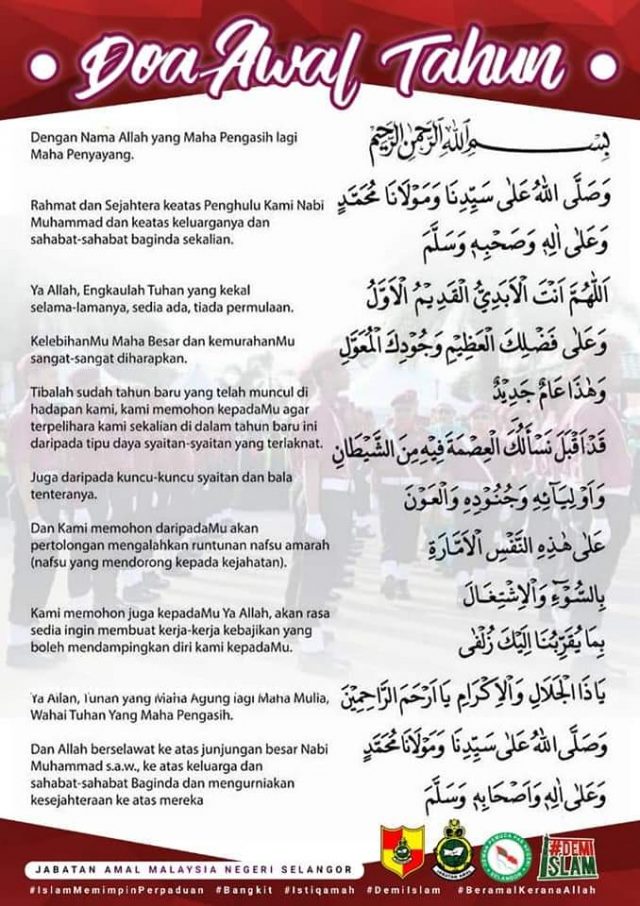 Doa Awal Tahun
Dengan Nama Allah yang Maha Pengasih lagi
Maha Penyayang.
Rahmat dan Sejahtera keatas Penghulu Kami Nabi
Muhammad dan keatas keluarganya dan
sahabat-sahabat baginda sekalian.
Ya Allah, Engkaulah Tuhan yang kekal
selama-lamanya, sedia ada, tiada permulaan.
KelebihanMu Maha Besar dan kemurahanMu
sangat-sangat diharapkan.
Tibalah sudah tahun baru yang telah muncul di
hadapan kami, kami memohon kepadaMu agar
terpelihara kami sekalian di dalam tahun baru ini
daripada tipu daya syaitan-syaitan yang terlaknat.
Juga daripada kuncu-kuncu syaitan dan bala
tenteranya.
Dan Kami memohon daripadaMu akan
pertolongan mengalahkan runtunan nafsu amarah
(nafsu yang mendorong kepada kejahatan).
Kami memohon juga kepadaMu Ya Allah, akan rasa
sedia ingin membuat kerja-kerja kebajikan yang
boleh mendampingkan diri kami kepadaMu.
Ya Allah, Tuhan yang Maha Agung lagi Maha Mulia,
Wahai Tuhan Yang Maha Pengasih.
Dan Allah berselawat ke atas junjungan besar Nabi
Muhammad s.a.w., ke atas keluarga dan
sahabat-sahabat Baginda dan mengurniakan
kesejahteraan ke atas mereka
بِسْمِ اللهِ الرَّحْمٰنِ الرَّحِيْمِ
وَصَلَّى اللهُ عَلٰى سَيِّدِنَا وَمَوْلَانَا مُحَمَّدٍ
وَعَلٰى اٰلِهِ وَصَحْبِهِ وَسَلَّمَ
اَللّٰهُمَّ اَنْتَ الْاَبَدِيُّ الْقَدِيْمُ الْاَوَّلُ
وَعَلٰى فَضْلِكَ الْعَظِيْمِ وَجُوْدِكَ الْمُعَوَّلِ
وَهٰذَا عَامٌ جَدِيْدٌ
قَدْ اَقْبَلَ نَسْأَلُكَ الْعِصْمَةَ فِيْهِ مِنَ الشَّيْطَانِ
وَاَوْلِيَائِهِ وَجُنُوْدِهِ وَالْعَوْنَ
عَلٰى هٰذِهِ النَّفْسِ الْاَمَّارَةِ
بِالسُّوْءِ وَالْاِشْتِغَالَ
بِمَا يُقَرِّبُنَا اِلَيْكَ زُلْفٰى
يَا ذَا الْجَلَالِ وَالْاِكْرَامِ يَا اَرْحَمَ الرَّاحِمِيْنَ
وَصَلَّى اللهُ عَلٰى سَيِّدِنَا وَمَوْلَانَا مُحَمَّدٍ
وَعَلٰى اٰلِهِ وَاَصْحَابِهِ وَسَلَّمَ
#DEMI
ISLAM
JABATAN AMAL MALAYSIA NEGERI SELANGOR
#IslamMemimpinPerpaduan #Bangkit #Istiqamah #DemiIslam #BeramalKeranaAllah